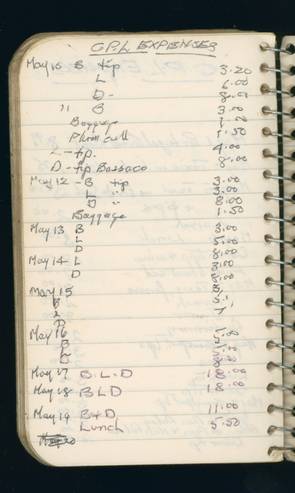 G.P.L EXPENSES
May 10 B tip 3.20
L 6.00
D- 8.00
" B 3.00
Baggage
Phone call 1.50
L - tip. 4.00
D - tip 8.00
May 12 - B tip 3.00
L " 3.00
D " 8.00
Baggage 1.50
May 13 B 3.00
L 5.00
D 8.00
May 14 L 3.00
D 8.00
May 15
B
L
D
May 16
B
L
D
May 17 B.L.D 18.00
May 18 BLD 18.00
May 19 B+D 11.00
Lunch 5.50